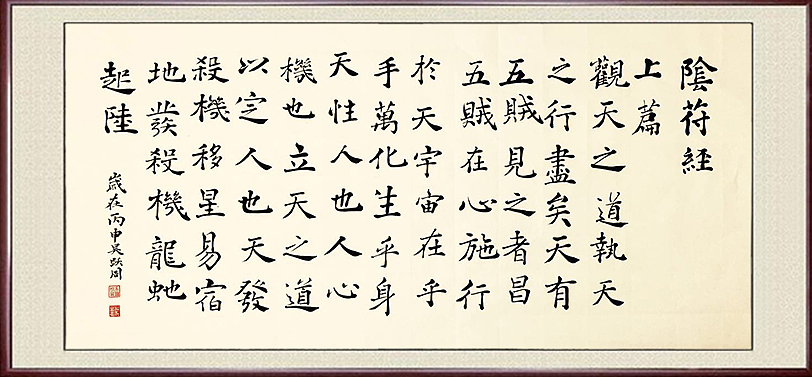 陰符經
上篇
觀天之道執天
之行盡矣天有
五賊見之者昌
五賊在心施行
於天宇宙在乎
手萬化生乎身
天性人也人心
機也立天之道
以定人也天發
殺機移星易宿
地發殺機龍虵
起陸
歲在丙申吴跃